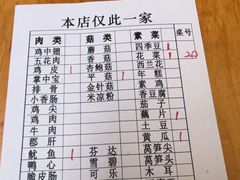 本店仅此一家
肉类 菇类 素菜 桌号
鸡中翅 蘑菇 四季豆 1
五花肉 香菇 花菜 1 20
鸡皮 1 杏鲍菇 西兰花
掌中宝 平菇 1 年糕
排骨 金针菇 素鸡
小香肠 米凉粉 香豆腐
鸡尖 茄子
鸡肉 藕片 1
牛肉 土豆
郡肝 黄瓜 1
鱿鱼 1 芬达 莴笋尖
鸭心 雪碧 莴笋头
可乐 木耳